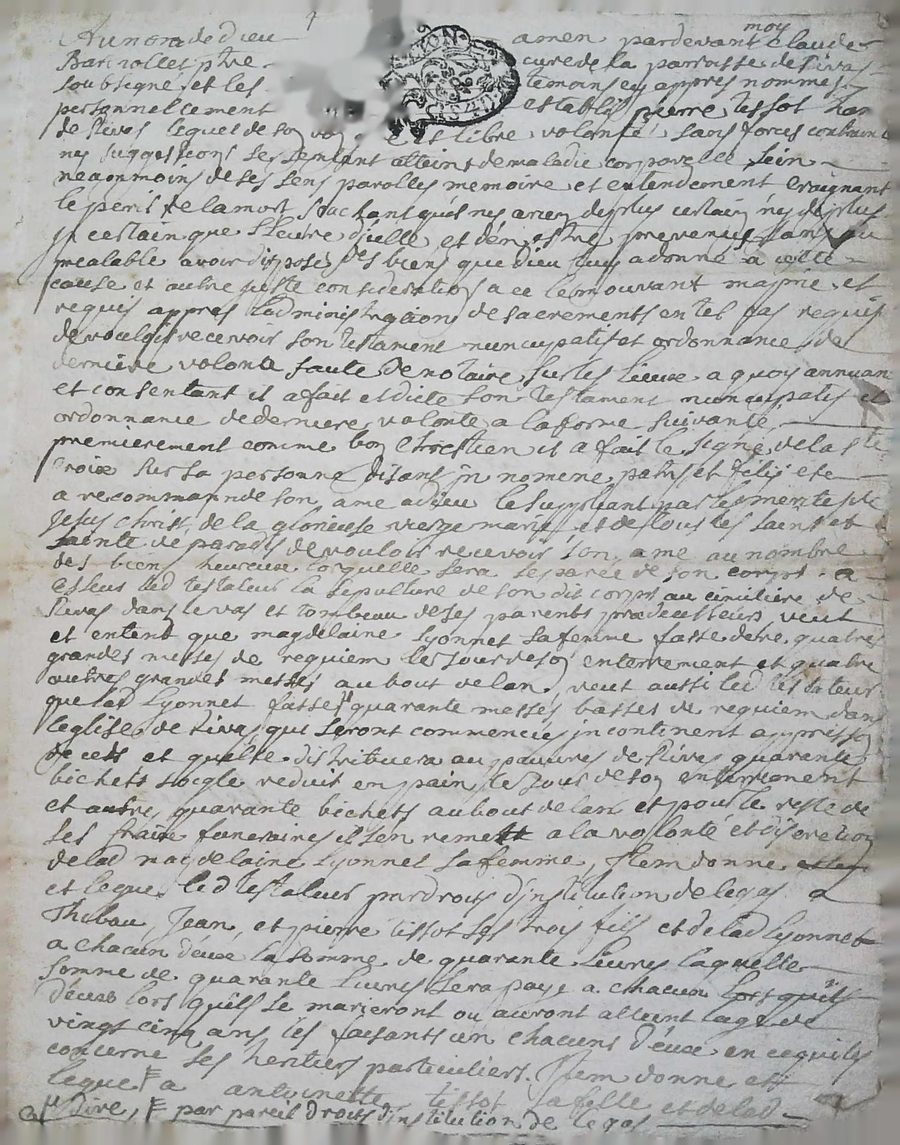 Au nom de dieu amen pardevant moy Claude
Barrollet ptre curé de la parroisse de Rivas
soubsigné et les témoins cy appres nommés
personnellement establi pierre tissot
de Rivas lequel de son et libre volonté sans forces contrainte
ny suggestions se sentant atteint de maladie corporelle sein
neaonmoins de ses sens parolles memoire et entendement craignant
le peril de la mort sachant qu'il ny a rien de plus certain ny de plus
incertain que l'heure d'icelle et d'en estre prevenu sans au
prealable avoir disposé des biens que dieu luy a donné a cette
cause et autre juste consideration a ce le mouvant m'a prié et
requis appres l'administration de sacrements en tel cas requis
de vouloir recevoir son testament nuncupatif et ordonnance de
derniere volonté faute de notaire sur les lieux a quoy annuant
et consentant il a fait et dicté son testament nuncupatif et
ordonnance de derniere volonté a la forme suivante,
premierement comme bon Chrestien il a fait le signe de la ste
Croix sur sa personne disant jn nomine patris et filij etc
a recommandé son ame a dieu le suppliant par le merite de
Jesus Christ, de la glorieuse vierge marie et de tous les saints et
sainte de paradis de vouloir recevoir son ame au nombre
des bien heureux lorquelle sera separée de son corps, a
esleus led testateur la sepulture de son dit corps au cimitiere de
Rivas dans le vas et tombeau de ses parents predecesseurs, veut
et entent que magdelaine Lyonnet sa femme fasse dire quatre
grandes messes de requiem le jour de son enterrement et quatre
autres grandes messes au bout de lan, veut aussi led testateur
que lad Lyonnet fasse quarante messes basses de requiem dans
l'eglise de Rivas qui seront commencés jncontinent appres son
deces et qu'elle distribuera au pauvres de Rivas quarante
bichets soegle reduit en pain le jour de son enterrement
et autre quarante bichets au bout de lan et pour le reste de
ses fraits funeraires il s'en remett a la vollonté et discretion
de lad magdelaine Lyonnet sa femme, Item donne
et legue led testateur par droits d'institution de legas a
Thibau, Jean, et pierre tissot ses trois fils et de lad Lyonnet
a chacun d'eux la somme de quarante livres laquelle
somme de quarante livres sera paye a chacun lorsqu'ils
d'eux lors qu'ils se marieront ou auront atteint l'age de
vingt cinq ans les faisants un chacuns d'eux en ce qui les
concerne ses heritiers particuliers. Item donne et
legue a antoinette tissot sa fille et de lad
dire, par pareil droits d'institution de legas